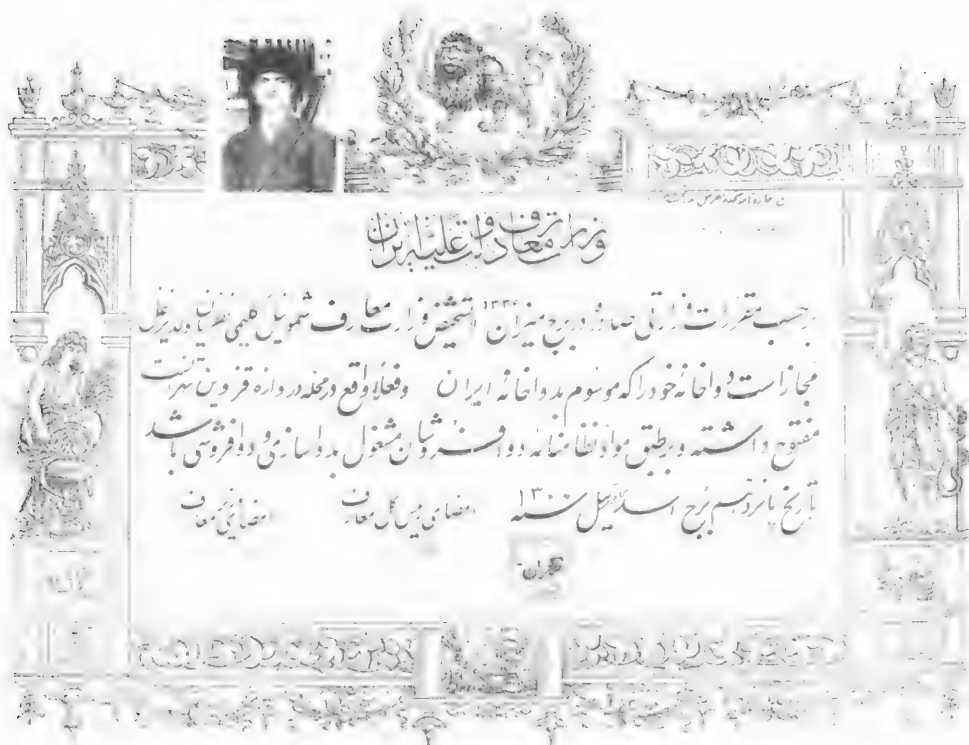 وزارت معارف دولت علیه ایران
برحسب مقررات وزارتی صادره در برج میزان ۱۳۳۶ تشخیص وزارت معارف شموئیل کلیمی
مجاز است دواخانه خود را که موسوم بدواخانه ایران وفعلا واقع در محله دروازه قزوین است
مفتوح داشته و بر طبق مواد نظامنامه دوافروشان مشغول بدواسازی و دوافروشی باشد
تاریخ پانزدهم برج اسد سنه ۱۳۰۰ امضای رئیس کل معارف امضای معارف